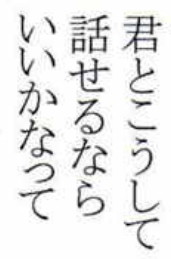 君とこうして
話せるなら
いいかなって